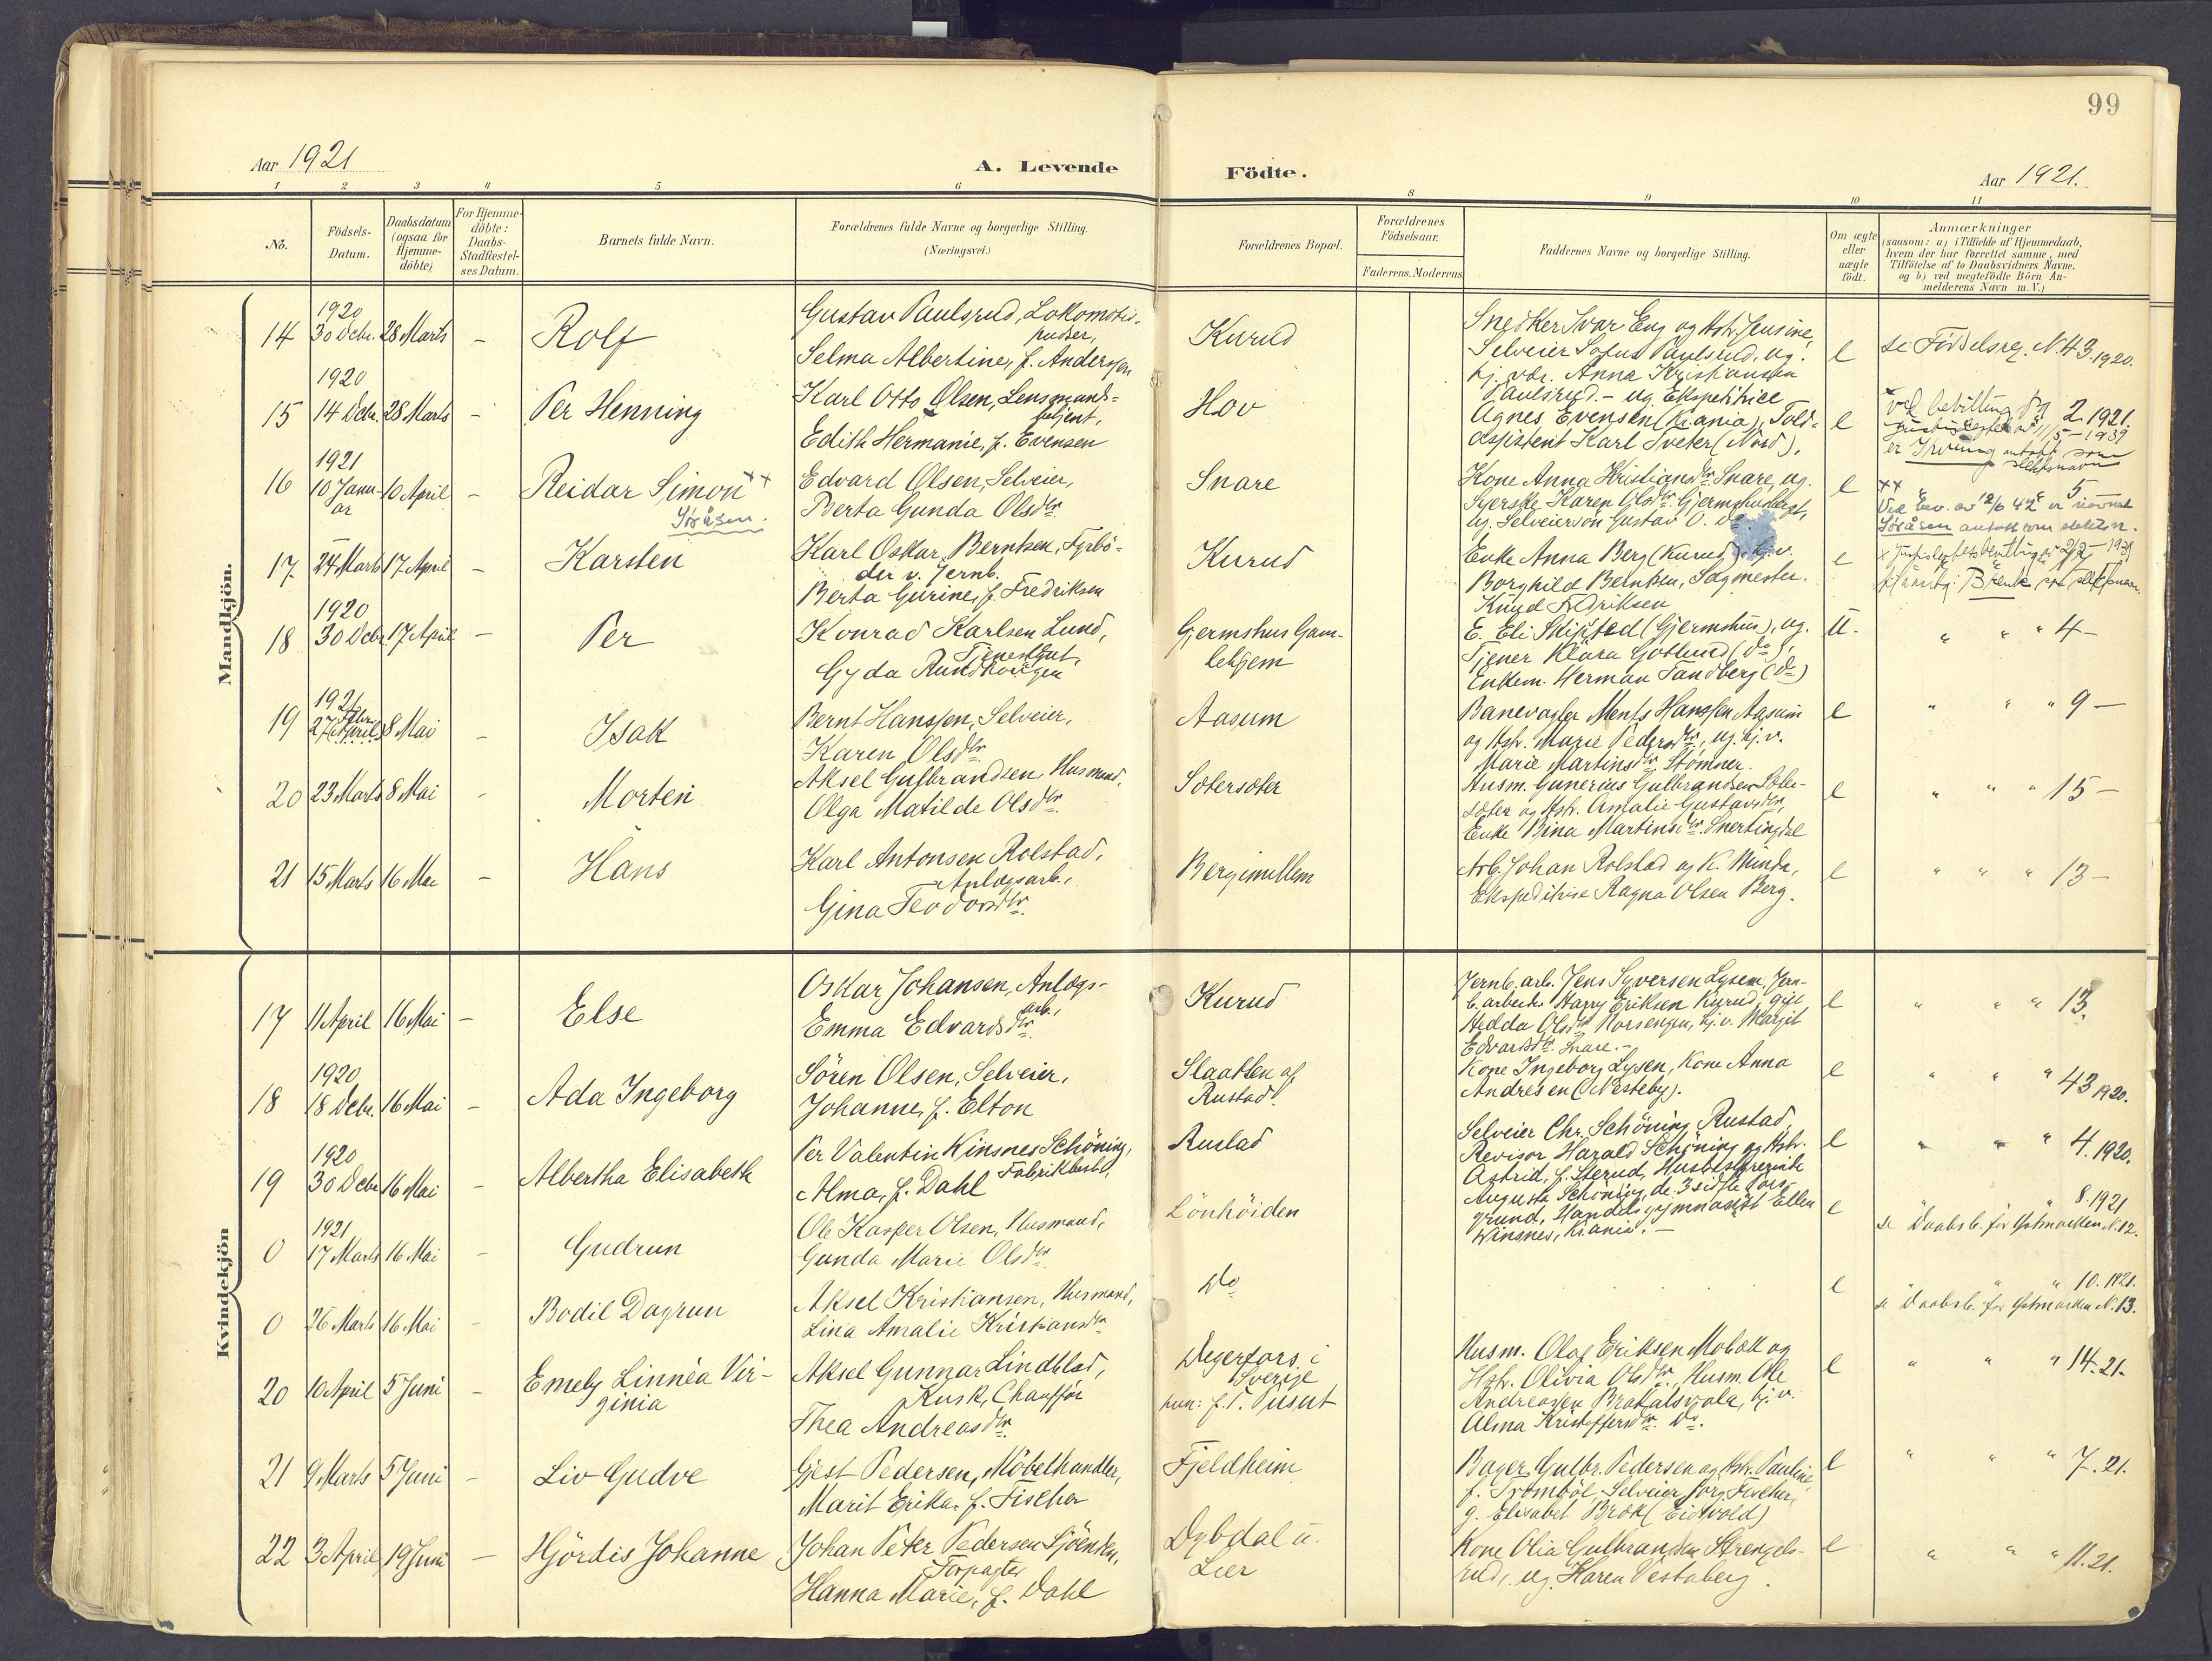 99
Aar 1921
A. Levende
Födte.
Aar 1921.
1 2 3 4 5 6 8 9 10 11
No.
Födsels-
Datum.
Daabsdatum
(ogsaa for
Hjemme-
döbte)
For Hjemme-
döbte:
Daabs-
Stadfæstel-
ses Datum.
Barnets fulde Navn.
Forældrenes fulde Navne og borgerlige Stilling.
(Næringsvei.)
Forældrenes Bopæl.
Forældrenes
Födselsaar.
Faderens. Moderens
Faddernes Navne og borgerlige Stilling.
Om ægte
eller
uægte
födt.
Anmærkninger
(saasom: a) i Tilfælde af Hjemmedaab,
hvem der har forrettet samme, med
Tilföielse af to Daabsvidners Navne,
og b) ved uægtefödte Börn An-
melderens Navn m. V.)
Mandkjön.
14
1920
30 Decbr.
28 Marts
-
Rolf
Gustav Paulsrud, Lokomotiv-
pudser,
Selma Albertine, f. Anderssen
Kurud
Snedker Ivar Eng og Hstr. Jensine,
Selveier Sofus Paulsrud, ug.
hj. vær. Anna Kristiansen
Paulsrud. - ug. Ekspeditrice
e
se Födselsreg. N. 43 1920.
15
1920
14 Decbr.
28 Marts
-
Per Henning
Karl Otto Olsen, Lensmands-
betjent,
Edith Hermanie, f. Evensen
Hov
Agnes Evensen (Kr.ania), Told-
assistent Karl Sveter (Nord),
e
2. 1921.
Ved bevilling fra
11/5-1939
er Irving antatt som
slektsnavn
16
1921
10 Janu-
ar
10 April
-
Reidar Simon xx
Söråsen.
Edvard Olsen, Selveier,
Berta Gunda Olsdtr.
Snare
Kone Anna Kristiansdtr. Snare, ug.
Syerske Karen Olsdtr. Gjermshusberget,
ug. Selveiersön Gustav O. do.
e
5
xx Ved bev. av 12/6 42 er navnet
Söråsen antatt som slektsn.
17.
24 Marts
17. April
-
Karsten
Karl Oskar Berntsen, Fyrbö-
der v. Jernb.
Berta Gurine, f. Fredriksen
Kurud
Enke Anna Berg (Kurud), hj. v.
Borghild Berntsen, Sagmester
Knud Fredriksen
e
2/2-1939
Brenk
18
1920
30 Decbr
17 April
-
Per
Konrad Karlsen Lund,
Tjenestgut,
Gyda Rundhaugen
Gjermshus Gam-
lehjem
E. Eli Skifsted (Gjermshus), ug.
Tjener Klara Gotlund (do),
Enkem. Herman Tandberg (do)
U.
" " " 4 -
19
1921
Febr.
27 April
8 Mai
-
Isak
Bernt Hanssen, Selveier,
Karen Olsdtr.
Aasum
Banevogter Ments Hanssen Aasum
og Hstr. Marie Pedersdtr., ug. hj. v.
Marie Martinsdtr. Stömner.
e
" " " 9 -
20
23 Marts
8 Mai
-
Morten
Aksel Gulbrandsen, Husmand,
Olga Matilde Olsdtr.
Sætersæter
Husm. Gunerius Gulbrandsen Sæter-
sæter og Hstr. Amalie Gustavsdtr.,
Enke Bina Martinsdtr. Snertingdal
e
" " " 15 -
21
15 Marts
16 Mai
-
Hans
Karl Antonsen Rolstad,
Anlægsarb.,
Gina Teodorsdtr.
Bergimellem
Arb. Johan Rolstad og K. Minda,
Ekspeditrice Ragna Olsen Berg.
e
" " " 13 -
Kvindekjön
17
11 April
16 Mai
-
Else
Oskar Johansen, Anlægs-
arb.,
Emma Edvardsdtr.
Kurud
Jernb. arb. Jens Syversen Lysem, Jern-
b. arbeider Harry Eriksen Kurud, gift
Hedda Olsdtr. Norsengen, hj. v. Margit
Edvardsdtr. Snare. -
e
" " " 13.
18
1920
18 Decbr.
16 Mai
-
Ada Ingeborg
Sören Olsen, Selveier,
Johanne, f. Elton
Slaatten af
Rustad.
Kone Ingeborg Lysen, Kone Anna
Andresen (Nesteby).
e
" " " 43 1920.
19
1920
30 Decbr
16 Mai
-
Albertha Elisabeth
Per Valentin Winsnes Schöning,
Fabrikbest.,
Alma, f. Dahl
Rustad
Selveier Chr. Schöning, Rustad,
Revisor Harald Schöning og Hstr.
Astrid, f. Sterud, Husbestyrerinde
Augusta Schöning, de 3 sidste Pors-
grund, Handelsgymnasist Ellen
Winsnes, Kr.ania. -
e
" " " 4. 1920.
0
1921
17 Marts
16 Mai
-
Gudrun
Ole Kasper Olsen, Husmand,
Gunda Marie Olsdtr.
Lönhöiden
e
" " 8. 1921
se Daabsb. for Östmarken N. 12.
0
26 Marts
16 Mai
-
Bodil Dagrun
Aksel Kristiansen, Husmand,
Lina Amalie Kristiansdtr.
Do
e
" " " 10. 1921.
se Daabsb. for Östmarken N. 13.
20
10 April
5 Juni
-
Emely Linnèa Vir-
ginia
Aksel Gunnar Lindblad,
Kusk, Chauffør
Thea Andreasdtr.
Degerfors i
Sverige
hun: f. T. Pusut
Husm. Olaf Eriksen Mobæk og
Hstr. Olivia Olsdtr., Husm. Ole
Andreassen Bratalsvola, hj. v.
Alma Kristoffersdtr. Do.
e
" " " 14-21.
21
9 Marts
5 Juni
-
Liv Gudve
Gjest Pedersen, Möbelhandler,
Marit Erika, f. Fischer
Fjeldheim
Bager Gulbr. Pedersen og Hstr. Pauline,
f. Trömböl, Selveier Jörg. Fischer,
g. Elisabet Bræk (Eidsvold)
e
" " " 7. 21.
22
3 April
19 Juni
-
Hjördis Johanne
Johan Peter Pedersen Sjöenden,
Forpagter
Hanna Marie, f. Dahl
Dybdal u.
Lier
Kone Olia Gulbrandsen Strengels-
rud, ug. Karen Vestaberg.
e
" " " 11. 21.